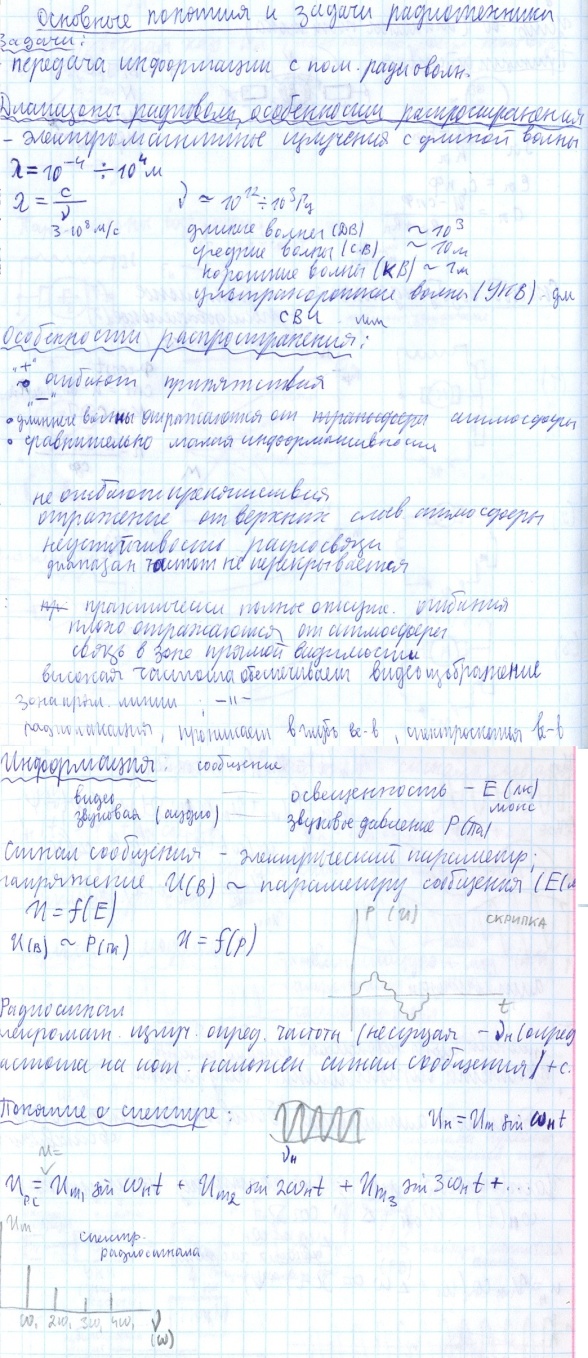 Основные понятия и задачи радиотехники
Задачи:
передача информации с пом. радиоволн.
Диапазоны радиоволн, особенности распространения
– электромагнитные излучения с длиной волны
λ = 10⁻⁴ ÷ 10⁴ м
λ = c/ν ν ≈ 10¹² ÷ 10³ Гц
3·10⁸ м/с
длинные волны (ДВ) ~ 10³
средние волны (СВ) ~ 10 м
короткие волны (КВ) ~ 1 м
ультракороткие волны (УКВ) - дм
СВЧ мм
Особенности распространения:
"+"
• огибают препятствия
"–"
• длинные волны отражаются от атмосферы
• сравнительно малая информативность
не огибают препятствия
отражение от верхних слоев атмосферы
неустойчивость радиосвязи
диапазон частот не перекрывается
практически полное отсутв. огибания
плохо отражаются от атмосферы
связь в зоне прямой видимости
высокая частота обеспечивает видеоизображение
зона прям. линии ; –"–
радиолокация, проникает в глубь ве-в, спектроскопия ве-в
Информация: сообщение
видео — освещенность – E (лк)
люкс
звуковая (аудио) — звуковое давление P (Па)
Сигнал сообщения – электрический параметр;
напряжение U(В) ~ параметру сообщения (E(л
U = f(E)
U(В) ~ P(Па) U = f(p)
P (U) СКРИПКА
t
Радиосигнал
лектромагн. излуч. опред. частоты (несущая – νн (опред
астота на кот. наложен сигнал сообщения) + с.
Понятие о спектре: Uн = Um sin ωнt
νн
U=
Uрс = Um₁ sin ωнt + Um₂ sin 2ωнt + Um₃ sin 3ωнt + ...
Um
спектр.
радиосигнала
ω₁ 2ω₁ 3ω₁ 4ω₁ ν
(ω)